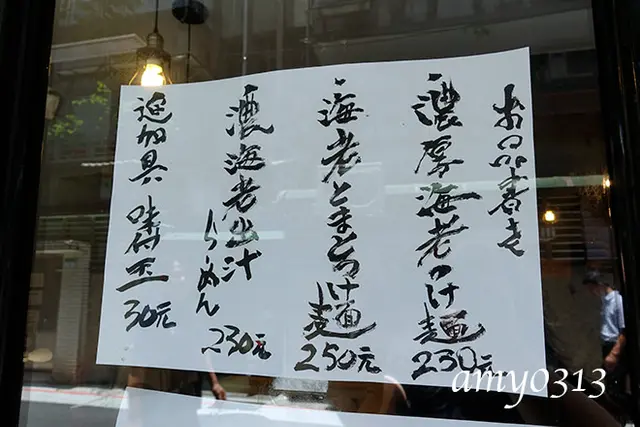 お品書き
濃厚海老つけ麺230元
海老とまとつけ麺250元
濃海老出汁らーめん230元
追加具 味付玉30元
amy0313